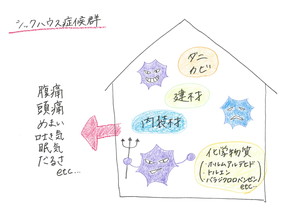 シックハウス症候群
ダニ
カビ
建材
内装材
腹痛
頭痛
めまい
吐き気
眠気
だるさ
etc...
化学物質
(・ホルムアルデヒド
・トルエン
・パラジクロロベンゼン)
etc...